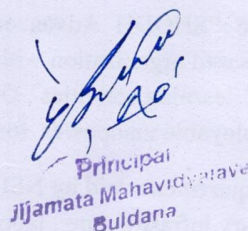 Principal
Jijamata Mahavidyalaya
Buldana